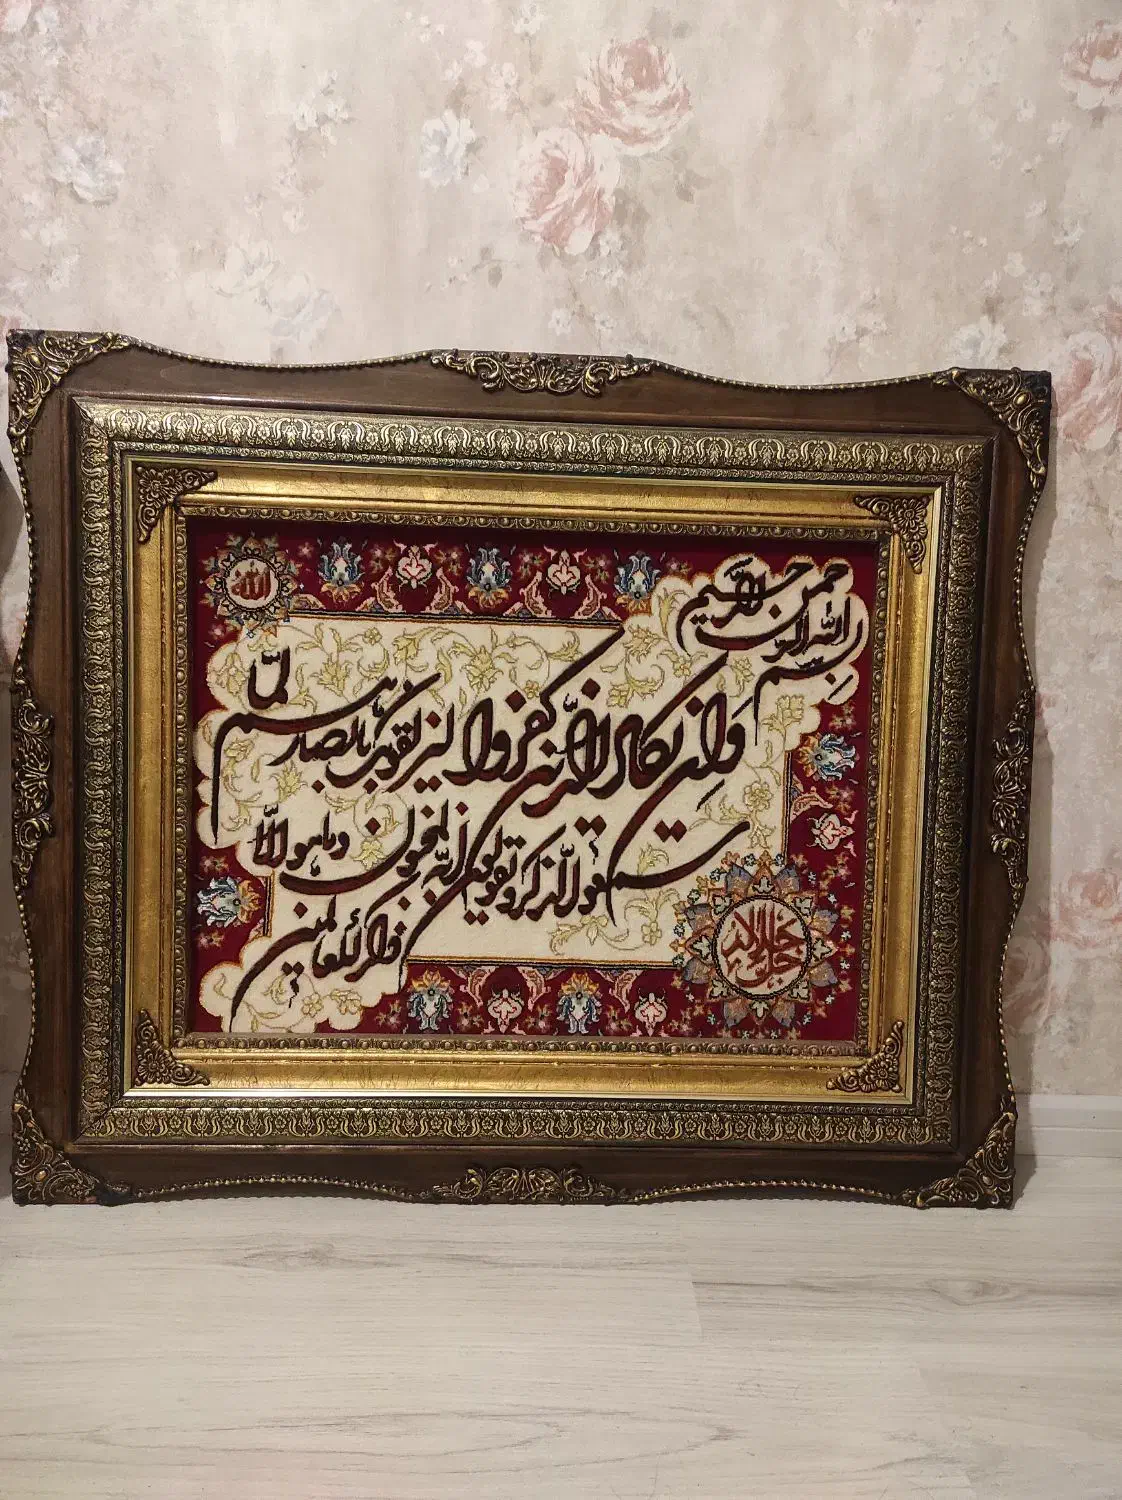 الله
بسم الله الرحمن الرحیم
وَاِن یکاد الذین کفروا لیزلقونک بابصارهم لمّا
سمعوا الذکر و یقولون انه لمجنون و ما هو الّا
ذکر للعالمین
جل جلاله